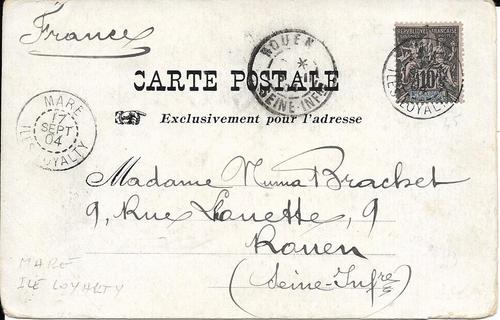 France
ROUEN
SEINE-INFRE
REPUBLIQUE FRANCAISE
10
ILES LOYALTY
CARTE POSTALE
Exclusivement pour l'adresse
MARE
17
SEPT
04
ILES LOYALTY
Madame Numa Brachet
9, Rue Lanette, 9
Rouen
(Seine-Infre)
MARE
ILE LOYALTY